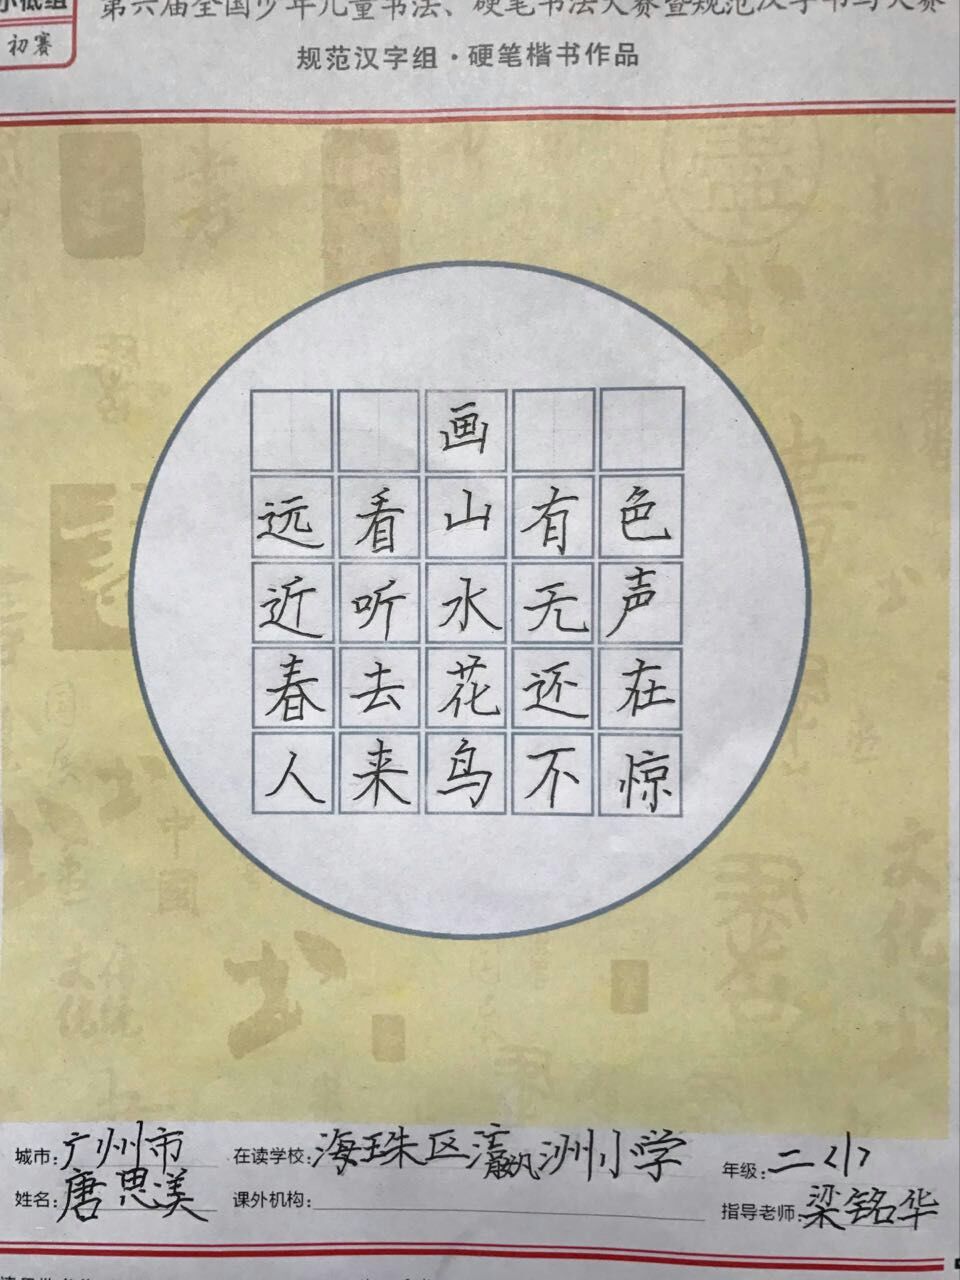 小低组
初赛
第六届全国少年儿童书法、硬笔书法大赛暨规范汉字书写大赛
规范汉字组·硬笔楷书作品
画
远看山有色
近听水无声
春去花还在
人来鸟不惊
城市:广州市 在读学校:海珠区瀛洲小学 年级:二<1>
姓名:唐思美 课外机构: 指导老师:梁铭华